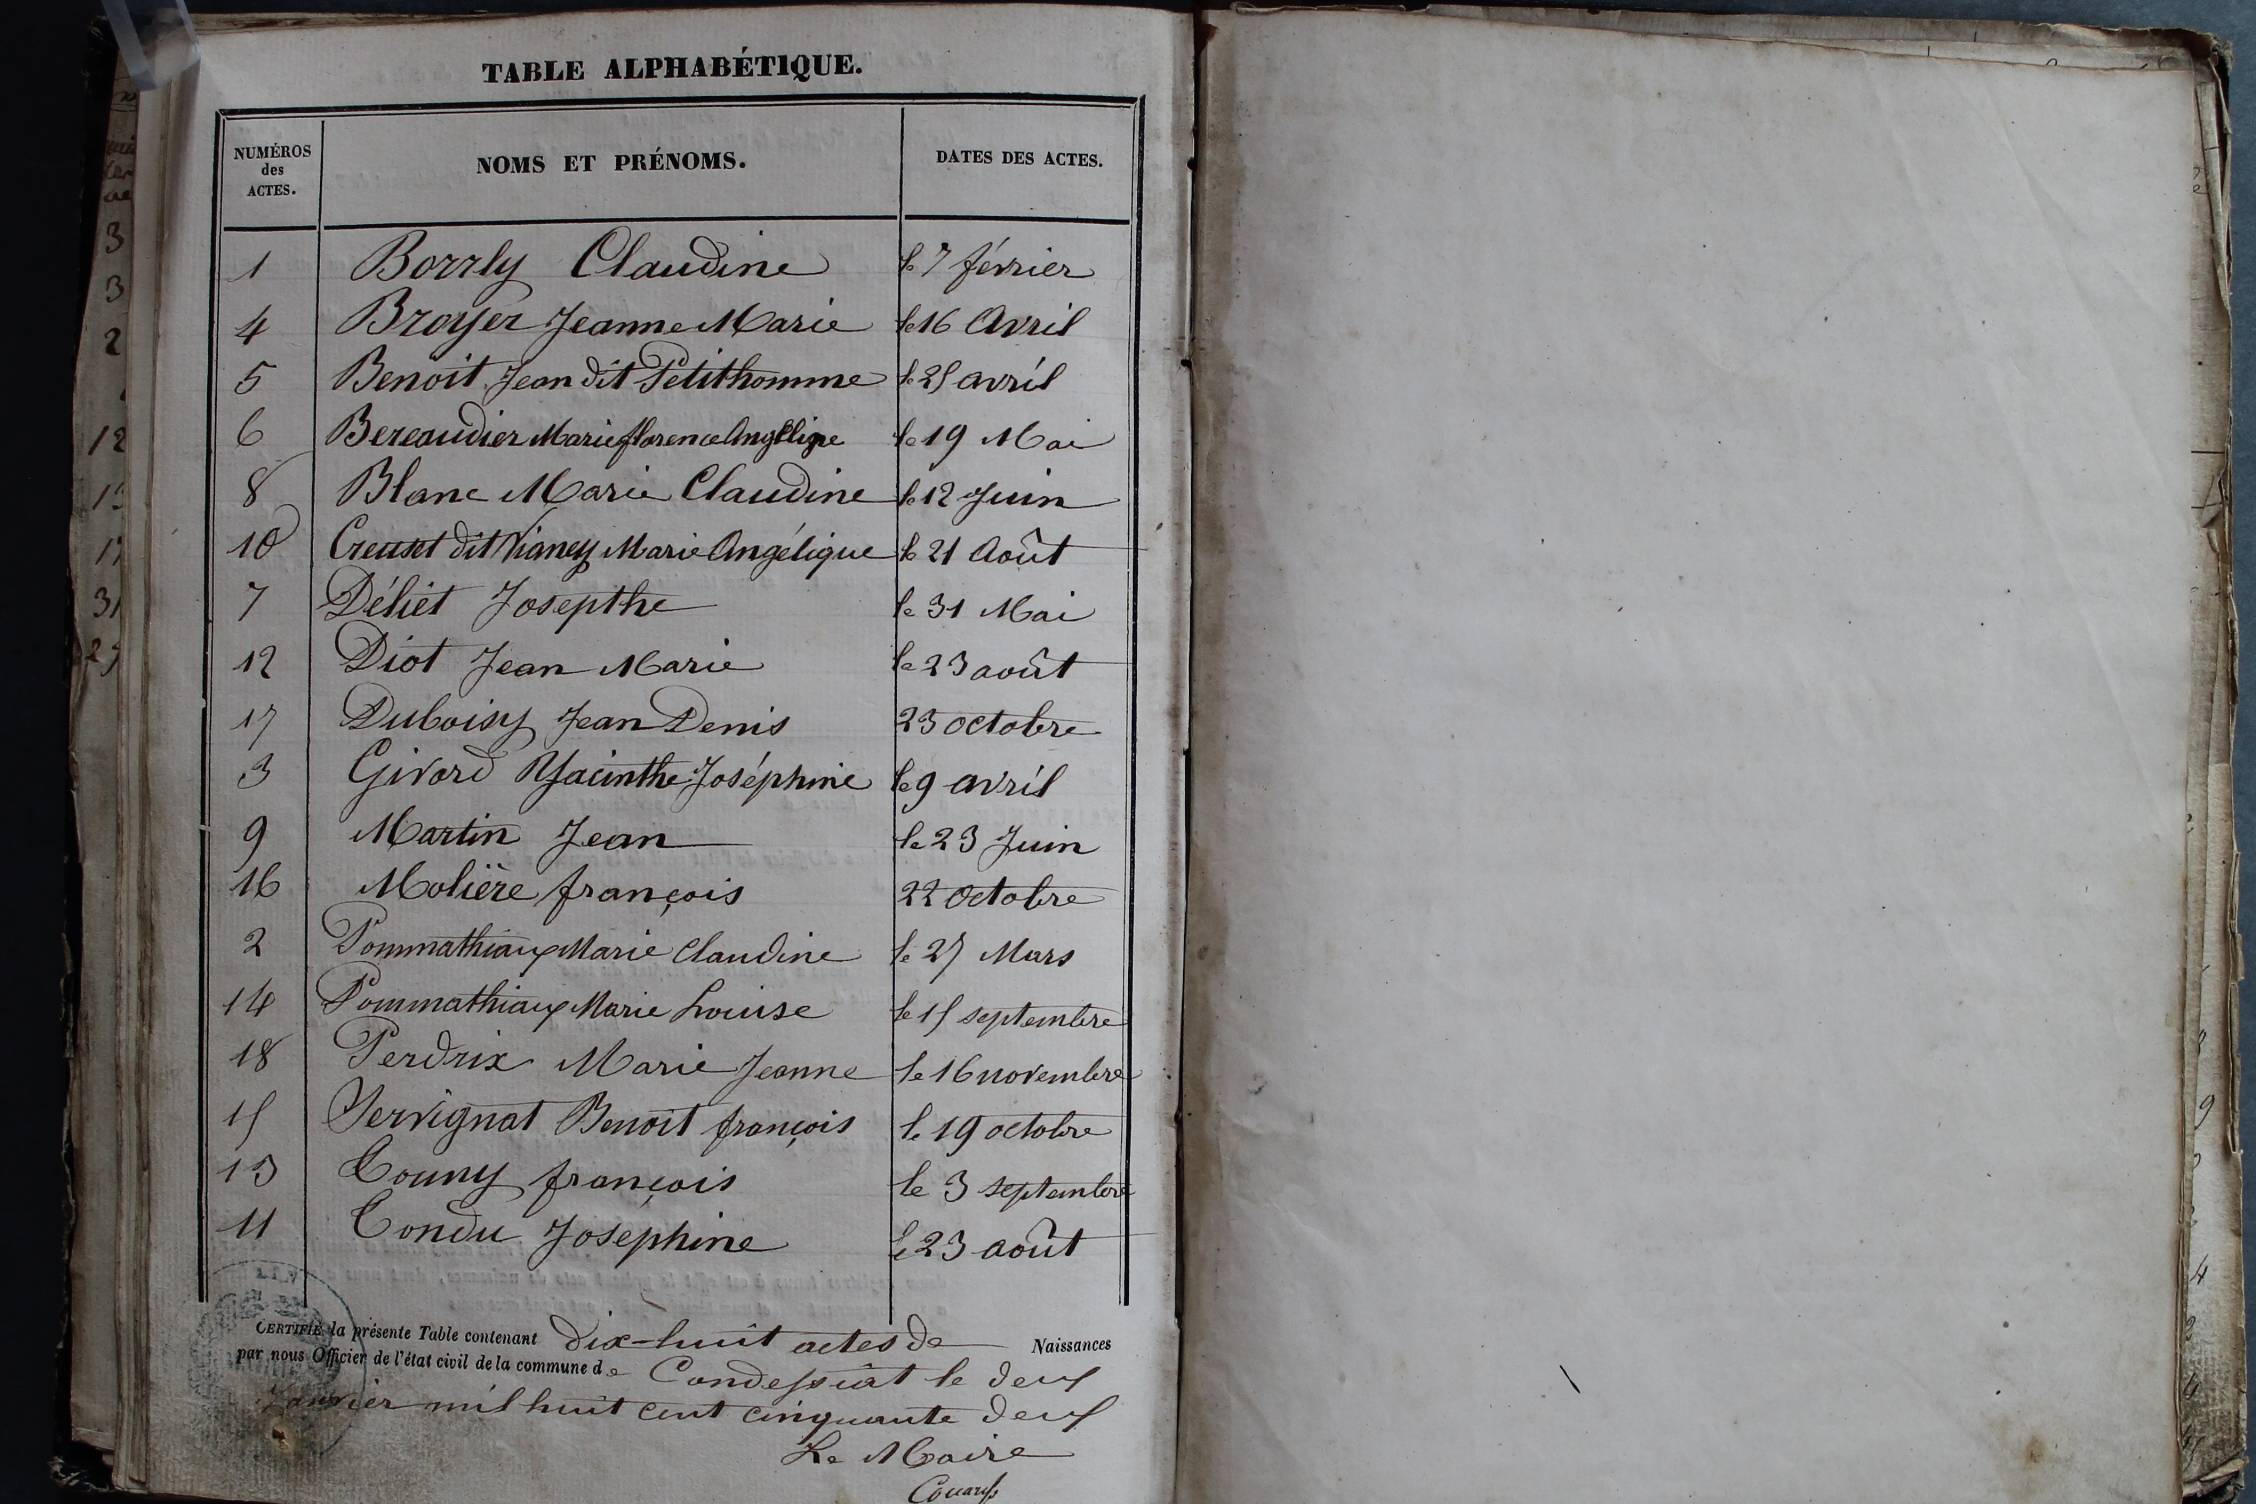 TABLE ALPHABÉTIQUE.
NUMÉROS des ACTES. NOMS ET PRÉNOMS. DATES DES ACTES.
1 Borrly Claudine le 7 février
4 Broyer Jeanne Marie le 16 Avril
5 Benoit Jean dit Petithomme le 25 avril
6 Bereaudier Marie florence Angélique le 19 Mai
8 Blanc Marie Claudine le 12 Juin
10 Creuset dit Vianey Marie Angélique le 21 Août
7 Déliet Josepthe le 31 Mai
12 Diot Jean Marie le 23 août
17 Duboisy Jean Denis 23 octobre
3 Givord Hyacinthe Joséphine le 9 avril
9 Martin Jean le 23 Juin
16 Molière françois 22 Octobre
2 Pommathiaux Marie Claudine le 25 Mars
14 Pommathiaux Marie Louise le 15 septembre
18 Perdrix Marie Jeanne le 16 novembre
15 Servignat Benoit françois le 19 octobre
13 Touny françois le 3 septembre
11 Tondu Josephine le 23 août
CERTIFIÉ la présente Table contenant dix-huit actes de Naissances
par nous Officier de l'état civil de la commune de Condessiat le deux
Janvier mil huit cent cinquante deux
Le Maire